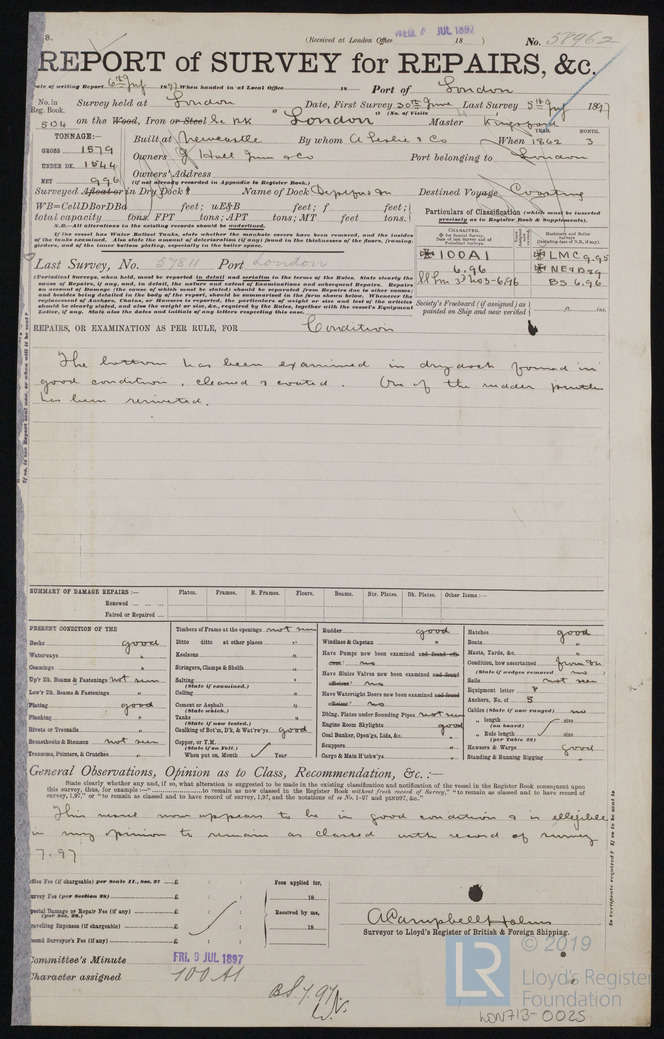 8.
(Received at London Office WED. JUL 1897 18 )
No. 58962
REPORT of SURVEY for REPAIRS, &c.
ate of writing Report 6th July 1897 When handed in at Local Office 18 Port of London
No. in Reg. Book. Survey held at London Date, First Survey 30th June Last Survey 5th July 1897
(No. of Visits )
504 on the Wood, Iron or Steel Sc Bk "London" Master Kingsford
TONNAGE:— Built at Newcastle By whom A Leslie & Co When 1862 YEAR. MONTH. 3
GROSS 1579
UNDER DK. 1544
NET 996
Owners J Hall Junr & Co Port belonging to London
Owners' Address
(if not already recorded in Appendix to Register Book.)
Surveyed Afloat or in Dry Dock? Name of Dock Destined Voyage Coasting
WB=CellDBorDBa feet; uE&B feet; f feet;
total capacity tons. FPT tons; APT tons; MT feet tons.
N.B.—All alterations in the existing records should be underlined.
If the vessel has Water Ballast Tanks, state whether the manhole covers have been removed, and the insides
of the tanks examined. Also state the amount of deterioration (if any) found in the thicknesses of the floors, framing,
girders, and of the inner bottom plating, especially in the boiler space.
Particulars of Classification (which must be inserted
precisely as in Register Book & Supplements).
CHARACTER.
✠ for Special Survey,
Date of last Survey and of
Periodical Surveys.
Machinery and Boiler
Surveys
(including date of N.B., if any).
✠ 100A1 ✠ LMC 9.95
6.96 ✠ NE&B89
SS Lon 3rd No3-6.96 BS 6.96
Society's Freeboard (if assigned) as
painted on Ship and now verified ft. ins.
Last Survey, No. 57811 Port London
(Periodical Surveys, when held, must be reported in detail and seriatim in the terms of the Rules. State clearly the
cause of Repairs, if any, and, in detail, the nature and extent of Examinations and subsequent Repairs. Repairs
on account of Damage (the cause of which must be stated) should be separated from Repairs due to other causes;
and besides being detailed in the body of the report, should be summarised in the form shown below. Whenever the
replacement of Anchors, Chains, or Hawsers is reported, the particulars of weight or size and test of the articles
should be clearly stated, and also the weight or size, &c., required by the Rules, together with the vessel's Equipment
Letter, if any. State also the dates and initials of any letters respecting this case.
REPAIRS, OR EXAMINATION AS PER RULE, FOR Condition
The bottom has been examined in dry dock found in
good condition, cleaned & coated. One of the rudder pintles
has been reriveted.
SUMMARY OF DAMAGE REPAIRS:— Plates. Frames. R. Frames. Floors. Beams. Str. Plates. Dk. Plates. Other Items:—
Renewed ... ... ...
Faired or Repaired ...
PRESENT CONDITION OF THE
Decks good
Waterways "
Coamings "
Up'r Dk. Beams & Fastenings not seen
Low'r Dk. Beams & Fastenings "
Plating good
Planking
Rivets or Treenails "
Breasthooks & Stemson not seen
Transoms, Pointers, & Crutches "
Timbers of Frame at the openings not seen
Ditto ditto at other places "
Keelsons "
Stringers, Clamps & Shelfs "
Salting "
(State if examined.)
Ceiling "
Cement or Asphalt "
(State which.)
Tanks "
(State if now tested.)
Caulking of Bot'm, D'k, & Wat'rw'ys good
Copper, or Y.M.
(State if on Felt.)
When put on, Month Year
Rudder good
Windlass & Capstan "
Have Pumps now been examined and found efficient? no
Have Sluice Valves now been examined and found efficient? no
Have Watertight Doors now been examined and found efficient? no
Dblng. Plates under Sounding Pipes not seen
Engine Room Skylights good
Coal Bunker, Open'gs, Lids, &c. "
Scuppers "
Cargo & Main H'tchw'ys "
Hatches good
Boats "
Masts, Yards, &c. "
Condition, how ascertained from Dk
(State if wedges removed no)
Sails not seen
Equipment letter
Anchors, No. of 5
Cables (State if now ranged) no
" length size
(on board)
" Rule length size
(per Table 22)
Hawsers & Warps good
Standing & Running Rigging "
General Observations, Opinion as to Class, Recommendation, &c. :—
State clearly whether any and, if so, what alteration is suggested to be made in the existing classification and notification of the vessel in the Register Book consequent upon
this survey, thus, for example:—"..................to remain as now classed in the Register Book without fresh record of Survey," "to remain as classed and to have record of
survey, 1,97," or "to remain as classed and to have record of survey, 1,97, and the notations of ss No. 1–97 and PtN97, &c."
This vessel now appears to be in good condition & is eligible
in my opinion to remain as classed with record of survey
7.97
ffice Fee (if chargeable) per Scale II., Sec. 27 £ : :
urvey Fee (per Section 28) £ : :
pecial Damage or Repair Fee (if any) £ : :
(per Sec. 28.)
ravelling Expenses (if chargeable) £ : :
econd Surveyor's Fee (if any) £ : :
Fees applied for,
18
Received by me,
18
A Campbell Holms
Surveyor to Lloyd's Register of British & Foreign Shipping.
Committee's Minute FRI. 9 JUL 1897
Character assigned 100A1
BS. 7.97
LR
© 2019
Lloyd's Register
Foundation
LON713-0025